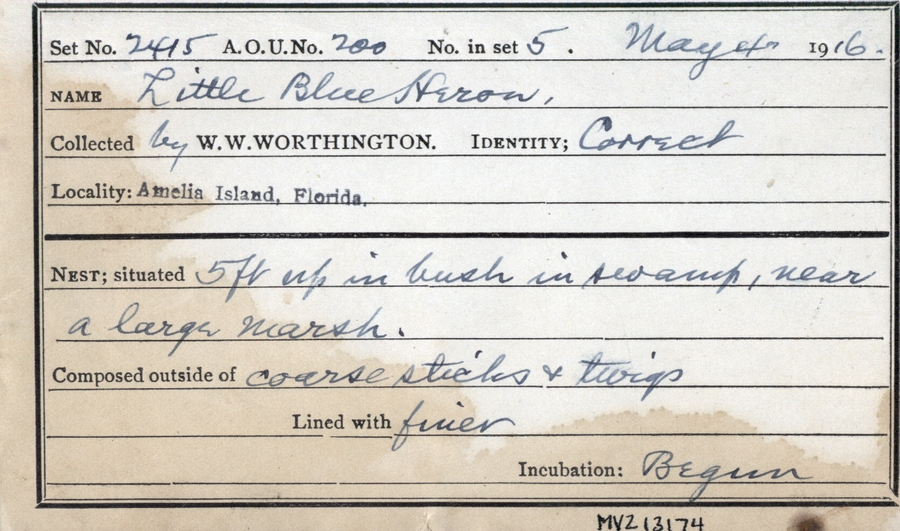 Set No. 2415 A.O.U.No. 200 No. in set 5. May 4 1916.
NAME Little Blue Heron.
Collected by W.W.WORTHINGTON. IDENTITY; Correct
Locality: Amelia Island, Florida.
NEST; situated 5ft up in bush in swamp, near
a large marsh.
Composed outside of coarse sticks & twigs
Lined with finer
Incubation: Begun
MVZ 13174